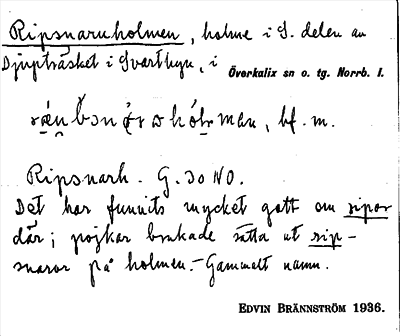 Ripsnaruholmen, holme i S. delen av
Djupträsket i Svartbyn, i Överkalix sn o. tg. Norrb. l.
bf. m.
Ripsnarh. G. 30 NO.
Det har funnits mycket gott om ripor
där; pojkar brukade sätta ut rip-
snaror på holmen. - Gammalt namn.
EDVIN BRÄNNSTRÖM 1936.